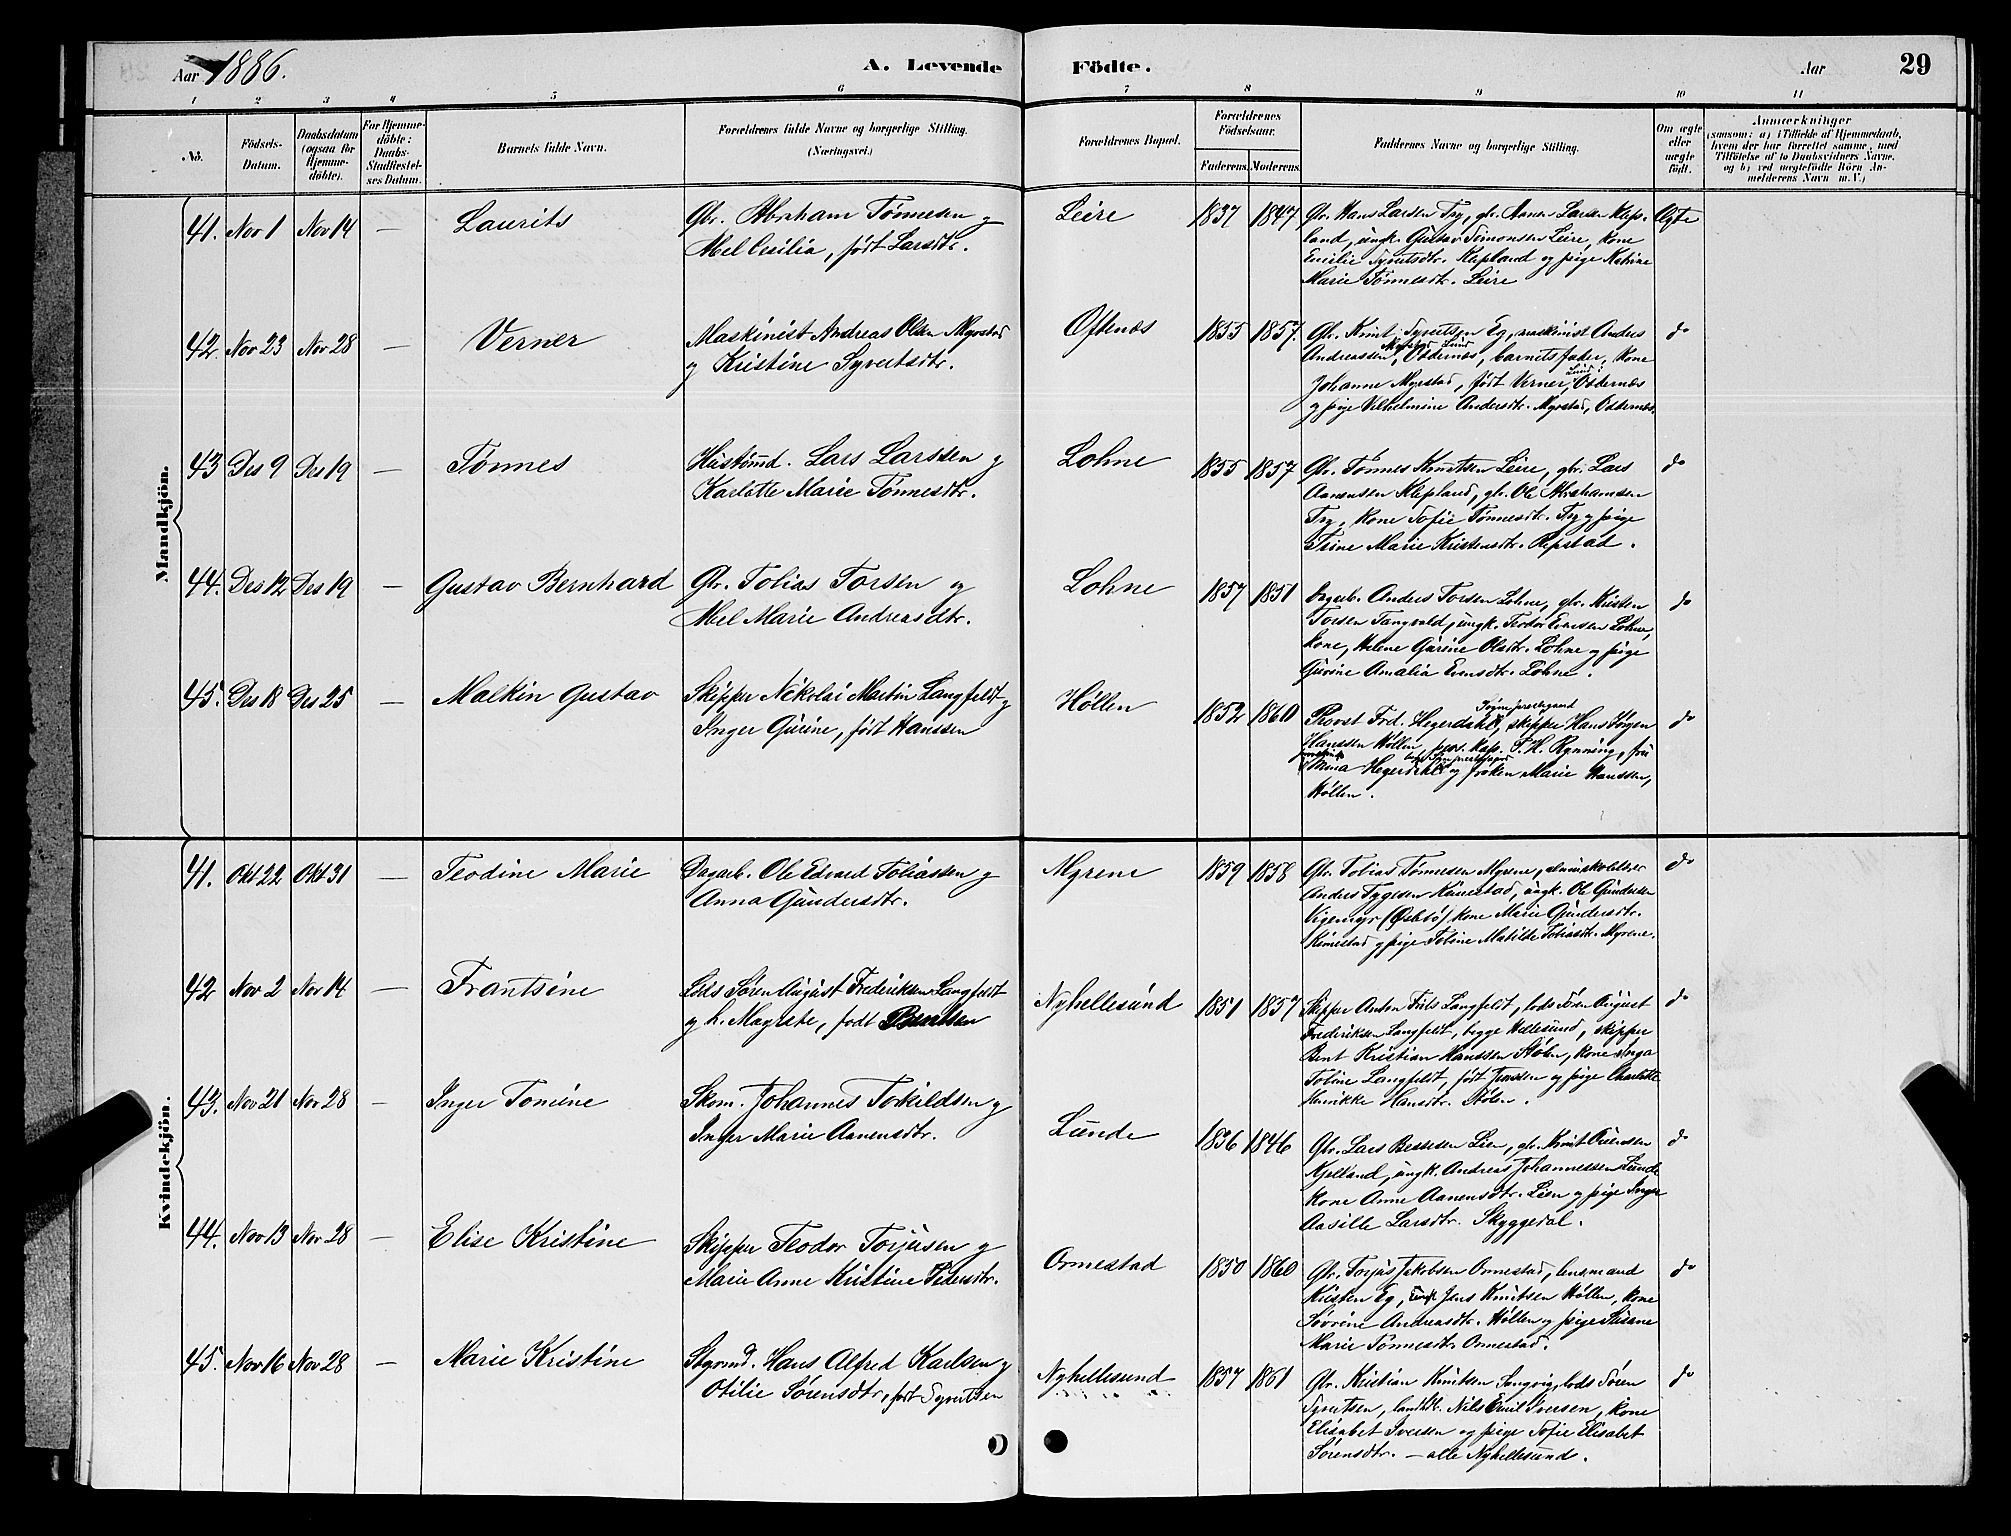 Aar 1886.
A. Levende Födte.
Aar
29
1 2 3 4 5 6 7 8 9 10 11
No.
Födsels-Datum.
Daabsdatum (ogsaa for Hjemme-döbte).
For Hjemme-döbte: Daabs-Stadfæstel-ses Datum.
Barnets fulde Navn.
Forældrenes fulde Navne og borgerlige Stilling. (Næringsvei.)
Forældrenes Bopæl.
Forældrenes Födselsaar.
Faderens. Moderens.
Faddernes Navne og borgerlige Stilling.
Om ægte eller uægte født.
Anmærkninger
(saasom: a) i Tilfælde af Hjemmedaab,
hvem der har forrettet samme, med
Tilföielse af to Daabsvidners Navne,
og b) ved uægtefödte Börn An-
melderens Navn m. V.)
Mandkjön.
41. Nov 1 Nov 14 — Laurits
Gbr. Abraham Tönnesen og
Abel Cecilia, født Larsdtr.
Leire 1837 1847
Gbr. Hans Larsen Try, gbr. Aanen Larsen Klep-
land, ungk. Gustav Simonsen Leire, kone
Emilie Syvertsdtr. Klepland og pige Katrine
Marie Tønnesdtr. Leire
Ægte
42. Nov 23 Nov 28 — Verner
Maskinist Andreas Olsen Myrstad
og Kristine Syvertsdtr.
Oftenæs 1855 1857.
Gbr. Knut Syvertsen Eg, maskinist Anders
Andreassen, Myrstad Lund Oddernæs, barnets fader, kone
Johanne Myrstad, født Verner, Lund, Oddernæs
og pige Vilhelmine Andersdtr. Myrstad, Oddernæs.
do
43 Des 9 Des 19 — Tønnes
Hustømd. Lars Larssen og
Karlotte Marie Tønnesdtr.
Lohne 1855 1857
Gbr. Tønnes Knutsen Leire, gbr. Lars
Aanensen Klepland, gbr. Ole Abrahamsen
Try, kone Sofie Tønnesdtr. Try og pige
Trine Marie Kristensdtr. Repstad.
do
44. Des 12 Des 19 — Gustav Bernhard
Gbr. Tobias Torsen og
Abel Marie Andreasdtr.
Lohne 1857 1851
Dagarb. Anders Torsen Lohne, gbr. Kristen
Torsen Tangvald, ungk. Teodor Evensen Lohne,
kone, Helene Gurine Olsdtr. Lohne og pige
Gurine Amalia Evensdtr. Lohne.
do
45. Des 18 Des 25 — Malkin Gustav
Skipper Nikolai Martin Langfeldt og
Inger Gurine, født Hanssen
Høllen 1852 1860
Provst Frd. Hegerdahl, Søgne præstegaard skipper Hans Jørgen
Hanssen Høllen, pers. kap. P. H. Rynning, fru
Mina Hegerdahl og frøken Marie Hanssen,
Høllen.
do
Kvindekjön.
41. Okt 22 Okt 31 — Teodine Marie
Dagarb. Ole Edvard Tobiassen og
Anna Gundersdtr.
Myrene 1859 1858
Gbr. Tobias Tønnesen Myrene,
Anders Tygesen Kinestad, ungk. Ole Gundersen
Vigemyr (Øslebø) kone Marie Gundersdtr.
Kinestad og pige Tobine Matilde Tobiasdtr. Myrene.
do
42 Nov 2 Nov 14 — Frantsine
Lods Søren August Frederiksen Langfeldt
og h. Magrete, født Berntsen
Nyhellesund 1851 1857
Skipper Anton Langfeldt, lods Søren August
Frederiksen Langfeldt, begge Hellesund, skipper
Bent Kristian Hanssen Stølen, kone Inga
Tobine Langfeldt, født Jenssen og pige Charlotte
Henrikke Hansdtr. Stølen.
do
43. Nov 21 Nov 28 — Inger Tomine
Skom. Johannes Torkildsen og
Inger Marie Aanensdtr.
Lunde 1836 1846
Gbr. Lars Bessesen Lien, gbr. Knut
Kjelland, ungk. Andreas Johannessen Lunde
kone Anne Aanensdtr. Lien og pige Inger
Aasille Larsdtr. Skyggedal.
do
44. Nov 13 Nov 28 — Elise Kristine
Skipper Teodor Torjusen og
Marie Anne Kristine Pedersdtr.
Ormestad 1850 1860
Gbr. Torjus Jakobsen Ormestad, lensmand
Kristen Eg, ungk Jens Knutsen Høllen, kone
Sørine Andreasdtr. Høllen og pige Susane
Marie Tønnesdtr. Ormestad.
do
45. Nov 16 Nov 28 — Marie Kristine
Styrmd. Hans Alfred Karlsen og
Otilie Sørensdtr, født Syvertsen
Nyhellesund 1857 1861
Gbr. Kristian Knutsen Langvig, lods Søren
Syvertsen, Nils Emil Iversen, kone
Elisabet Iversen og pige Sofie Elisabet
Sørensdtr. — alle Nyhellesund.
do